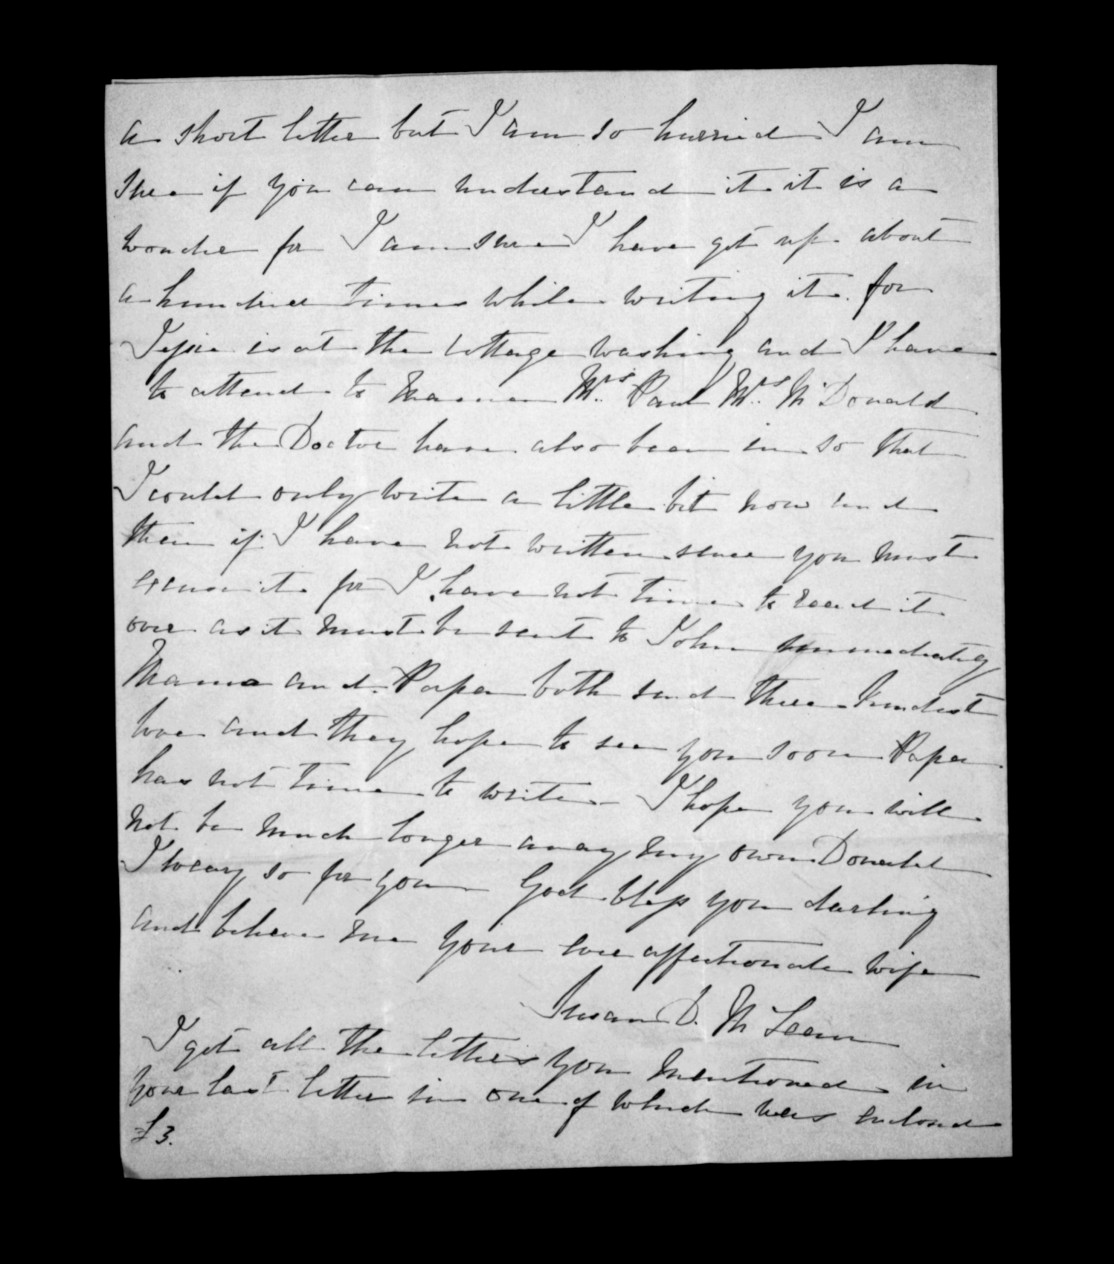 a short letter but I am so hurried I am
sure if you can understand it it is a
wonder for I am sure I have got up about
a hundred times while writing it for
is at the cottage washing and I have
to attend to Mama Mrs. Paul Mrs. McDonald
and the Doctor have also been in so that
I could only write a little bit now and
then if I have not written since you must
excuse it for I have not time to read it
over as it must be sent to John immediately
Mama and Papa both send there kindest
love and they hope to see you soon Papa
has not time to write I hope you will
not be much longer away my own Donald
I weary so for you God bless you darling
and believe me your ever affectionate wife
Susan D. McLean
I got all the letters you mentioned in
your last letter in one of which was inclosed
£3.